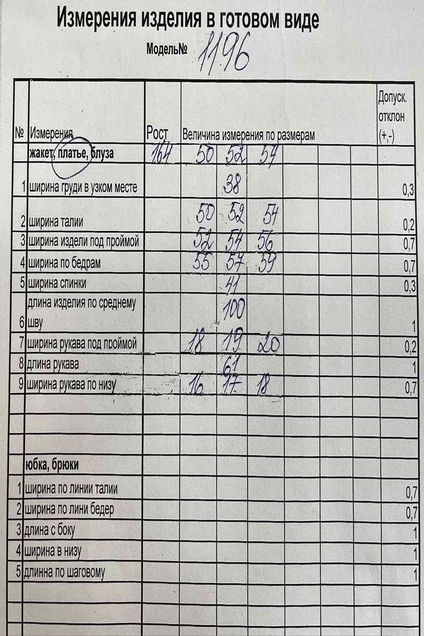 Измерения изделия в готовом виде
Модель№ 1196
№ Измерения Рост Величина измерения по размерам Допуск. отклон (+,-)
жакет, платье, блуза 164 50 52 54
1 ширина груди в узком месте 38 0,3
2 ширина талии 50 52 54 0,2
3 ширина издели под проймой 52 54 56 0,7
4 ширина по бедрам 55 57 59 0,7
5 ширина спинки 41 0,3
6 длина изделия по среднему шву 100 1
7 ширина рукава под проймой 18 19 20 0,2
8 длина рукава 61 1
9 ширина рукава по низу 16 17 18 0,7
юбка, брюки
1 ширина по линии талии 0,7
2 ширина по лини бедер 0,7
3 длина с боку 1
4 ширина в низу 1
5 длинна по шаговому 1